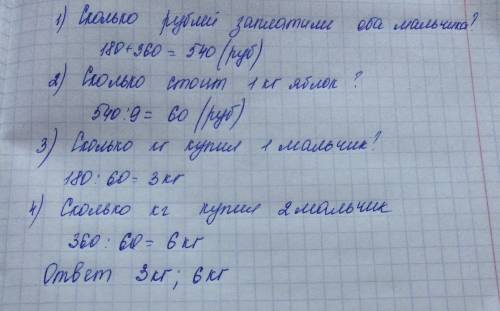 1) Сколько рублей заплатили оба мальчика?
180+360 = 540 (руб)
2) Сколько стоит 1 кг яблок?
540:9= 60 (руб)
3) Сколько кг купил 1 мальчик?
180: 60= 3 кг
4) Сколько кг купил 2 мальчик
360: 60= 6 кг
Ответ 3 кг; 6 кг